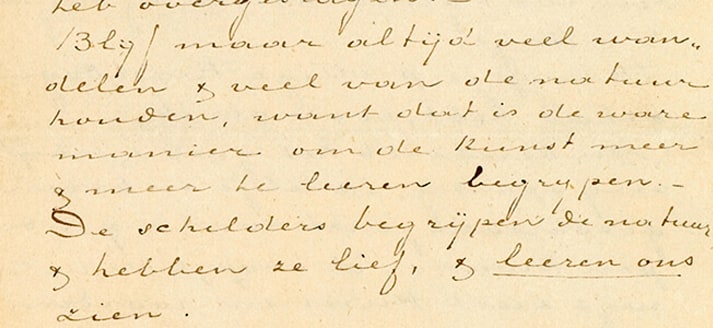 heb overgeslagen.
Blijf maar altijd veel wan„
delen & veel van de natuur
houden, want dat is de ware
manier om de kunst meer
& meer te leeren begrijpen. –
De schilders begrijpen de natuur
& hebben ze lief, & leeren ons
zien.